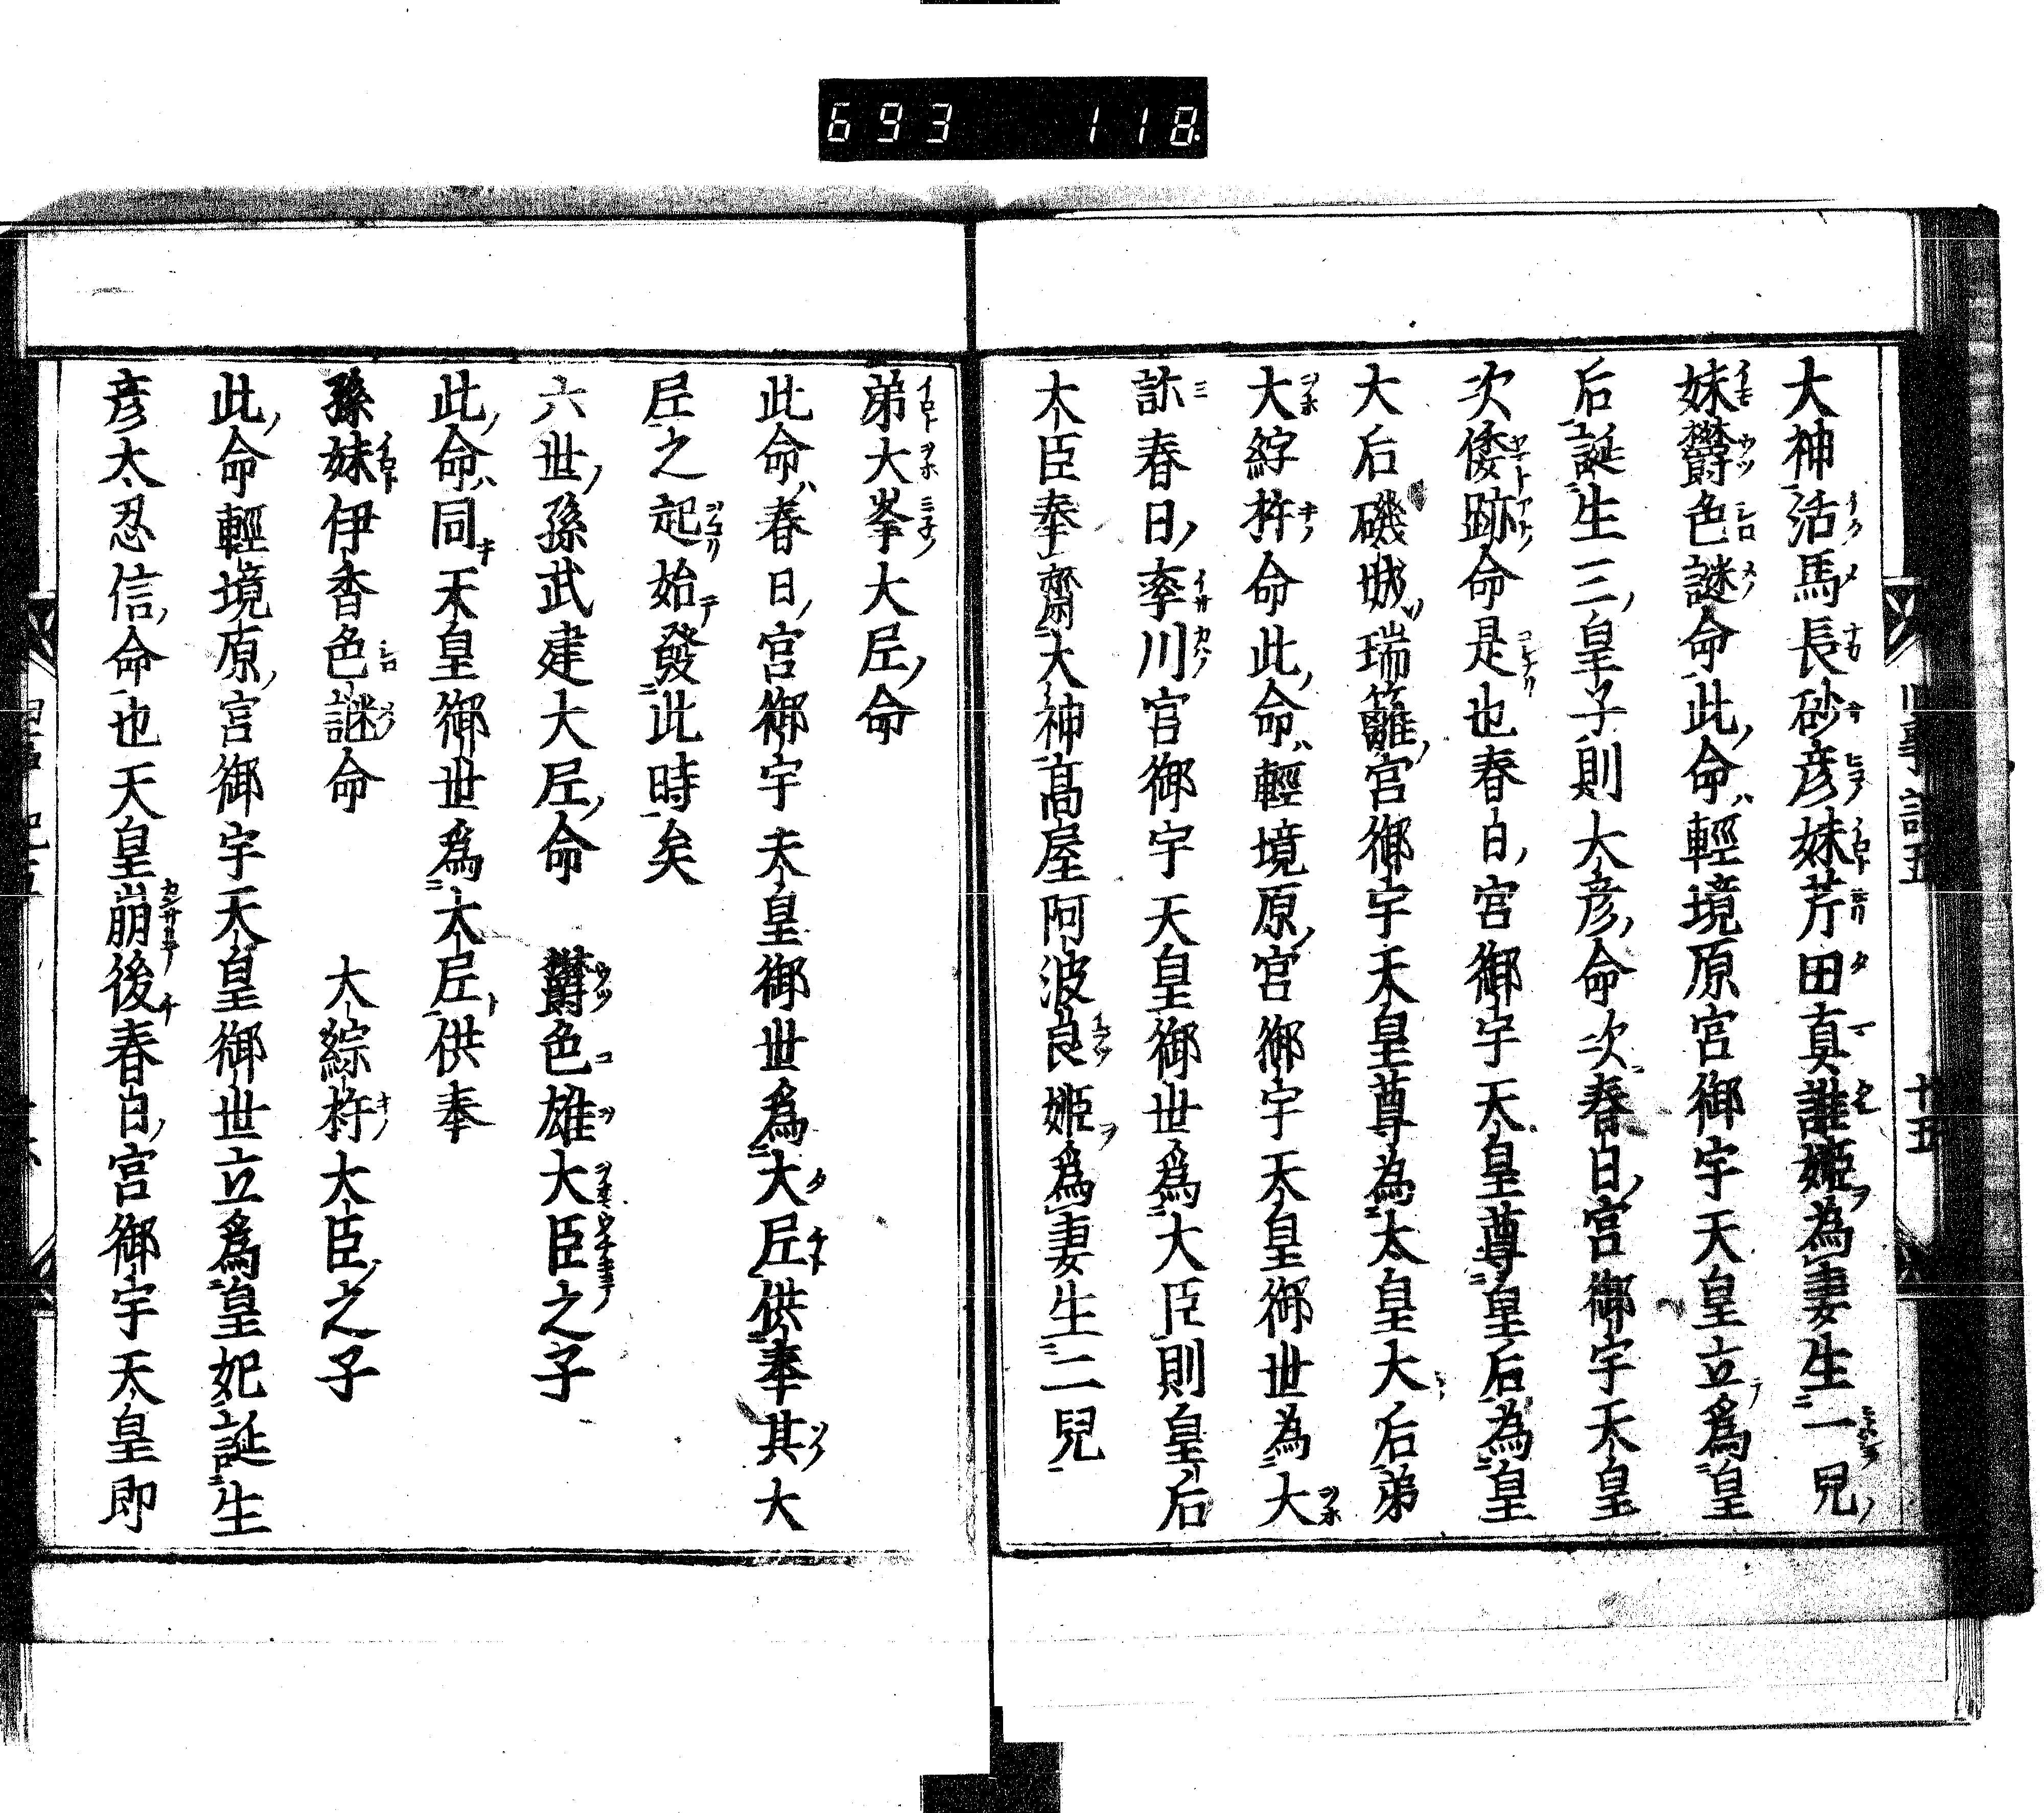 693 118
大神活馬長砂彦妹芹田真誰姫為妻生一兒
妹欝色謎命此命輕境原宮御宇天皇立爲皇
后誕生三皇子則大彦命次春日宮御宇天皇
次倭跡命是也春日宮御宇天皇尊皇后為皇
大后磯城瑞籬宮御宇天皇尊為太皇大后弟
大綜杵命此命輕境原宮御宇天皇御世為大
祢春日率川宮御宇天皇御世爲大臣則皇后
大臣奉齋大神髙屋阿波良姫爲妻生二兒
弟大峯大尼命
此命春日宮御宇天皇御世爲大尼供奉其大
尼之起始發此時矣
六世孫武建大尼命 欝色雄大臣之子
此命同天皇御世爲大尼供奉
孫妹伊香色謎命 大綜杵大臣之子
此命輕境原宮御宇天皇御世立爲皇妃誕生
彦太忍信命也天皇崩後春日宮御宇天皇即